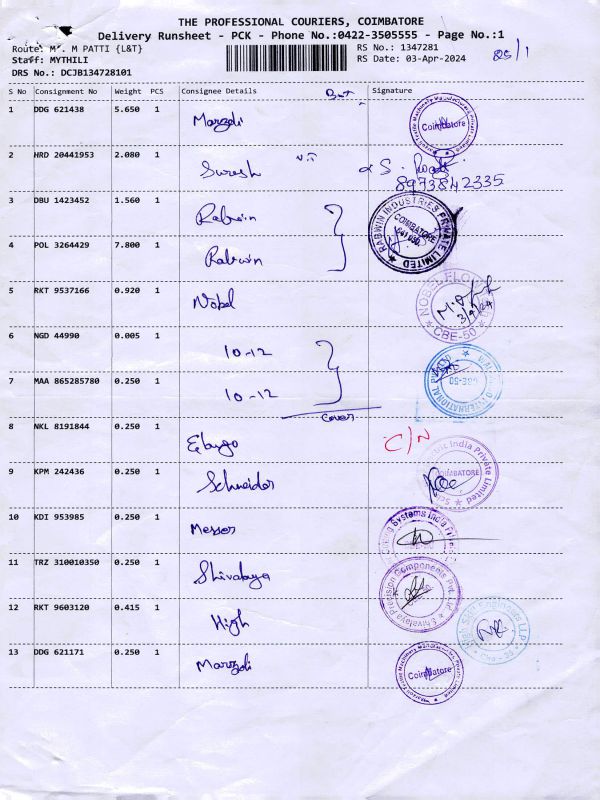 THE PROFESSIONAL COURIERS, COIMBATORE
Delivery Runsheet - PCK - Phone No.:0422-3505555 - Page No.:1
Route: M'. M PATTI {L&T} RS No.: 1347281
Staff: MYTHILI RS Date: 03-Apr-2024
DRS No.: DCJB134728101
S No Consignment No Weight PCS Consignee Details Signature
1 DDG 621438 5.650 1 Marzoli Coimbatore
2 HRD 20441953 2.080 1 Suresh
8973842335
3 DBU 1423452 1.560 1 Rabwin RABWIN INDUSTRIES PRIVATE LIMITED COIMBATORE
4 POL 3264429 7.800 1 Rabwin
5 RKT 9537166 0.920 1 Nobel CBE-50
6 NGD 44990 0.005 1 10-12
7 MAA 865285780 0.250 1 10-12 CBE-50
cover
8 NKL 8191844 0.250 1 C/N
9 KPM 242436 0.250 1 Schneider India Private Limited
10 KDI 953985 0.250 1 Messer Systems India
11 TRZ 310010350 0.250 1 Shivalaya Shivalaya Precision Components Pvt. Ltd
12 RKT 9603120 0.415 1 High Engineers LLP
13 DDG 621171 0.250 1 Marzoli Coimbatore